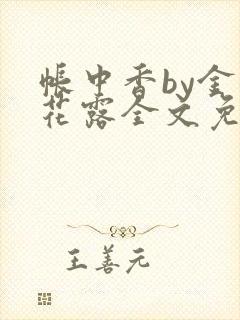 帐中香by金
花露全文免
王善元